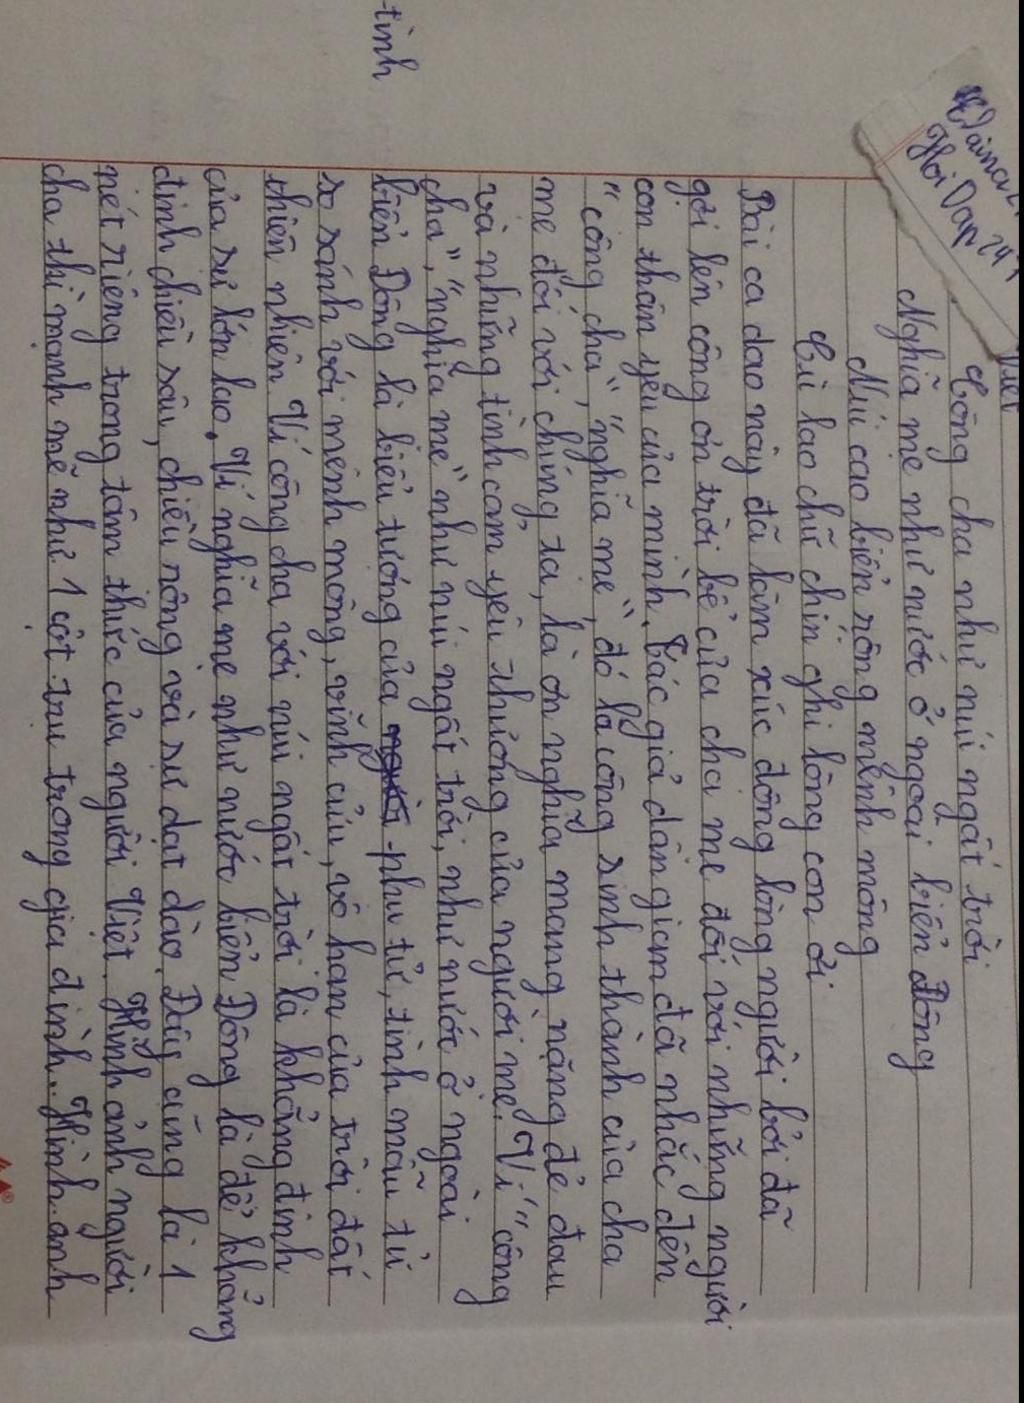 Hỏi Đáp 247
Công cha như núi ngất trời
Nghĩa mẹ như nước ở ngoài biển Đông
Núi cao biển rộng mênh mông
Cù lao chữ chín ghi lòng con ơi
Bài ca dao này đã làm xúc động lòng người bởi đã
gợi lên công ơn trời bể của cha mẹ đối với những người
con thân yêu của mình. Tác giả dân gian đã nhắc đến
"công cha", "nghĩa mẹ", đó là công sinh thành của cha
mẹ đối với chúng ta, là ơn nghĩa mang nặng đẻ đau
và những tình cảm yêu thương của người mẹ. Ví "công
cha", "nghĩa mẹ" như núi ngất trời, như nước ở ngoài
biển Đông là biểu tượng của phụ tử, tình mẫu tử
tình
so sánh với mênh mông, vĩnh cửu, vô hạn của trời đất
thiên nhiên. Ví công cha với núi ngất trời là khẳng định
của sự lớn lao. Ví nghĩa mẹ như nước biển Đông là để khẳng
định chiều sâu, chiều rộng và sự dạt dào. Đây cũng là 1
nét riêng trong tâm thức của người Việt. Hình ảnh người
cha thì mạnh mẽ như 1 cột trụ trong gia đình. Hình ảnh